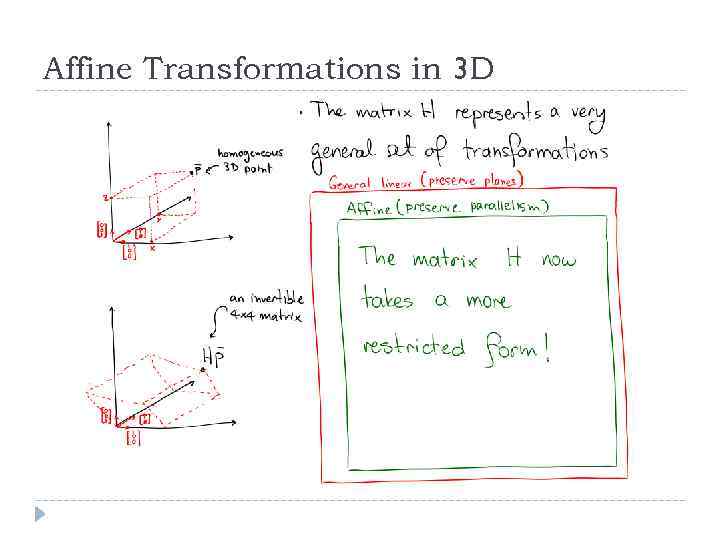 Affine Transformations in 3D
· The matrix H represents a very
general set of transformations
homogeneous
3D point
p̄
z
y
x
General linear (preserve planes)
Affine (preserve parallelism)
The matrix H now
takes a more
restricted form!
an invertible
4x4 matrix
Hp̄